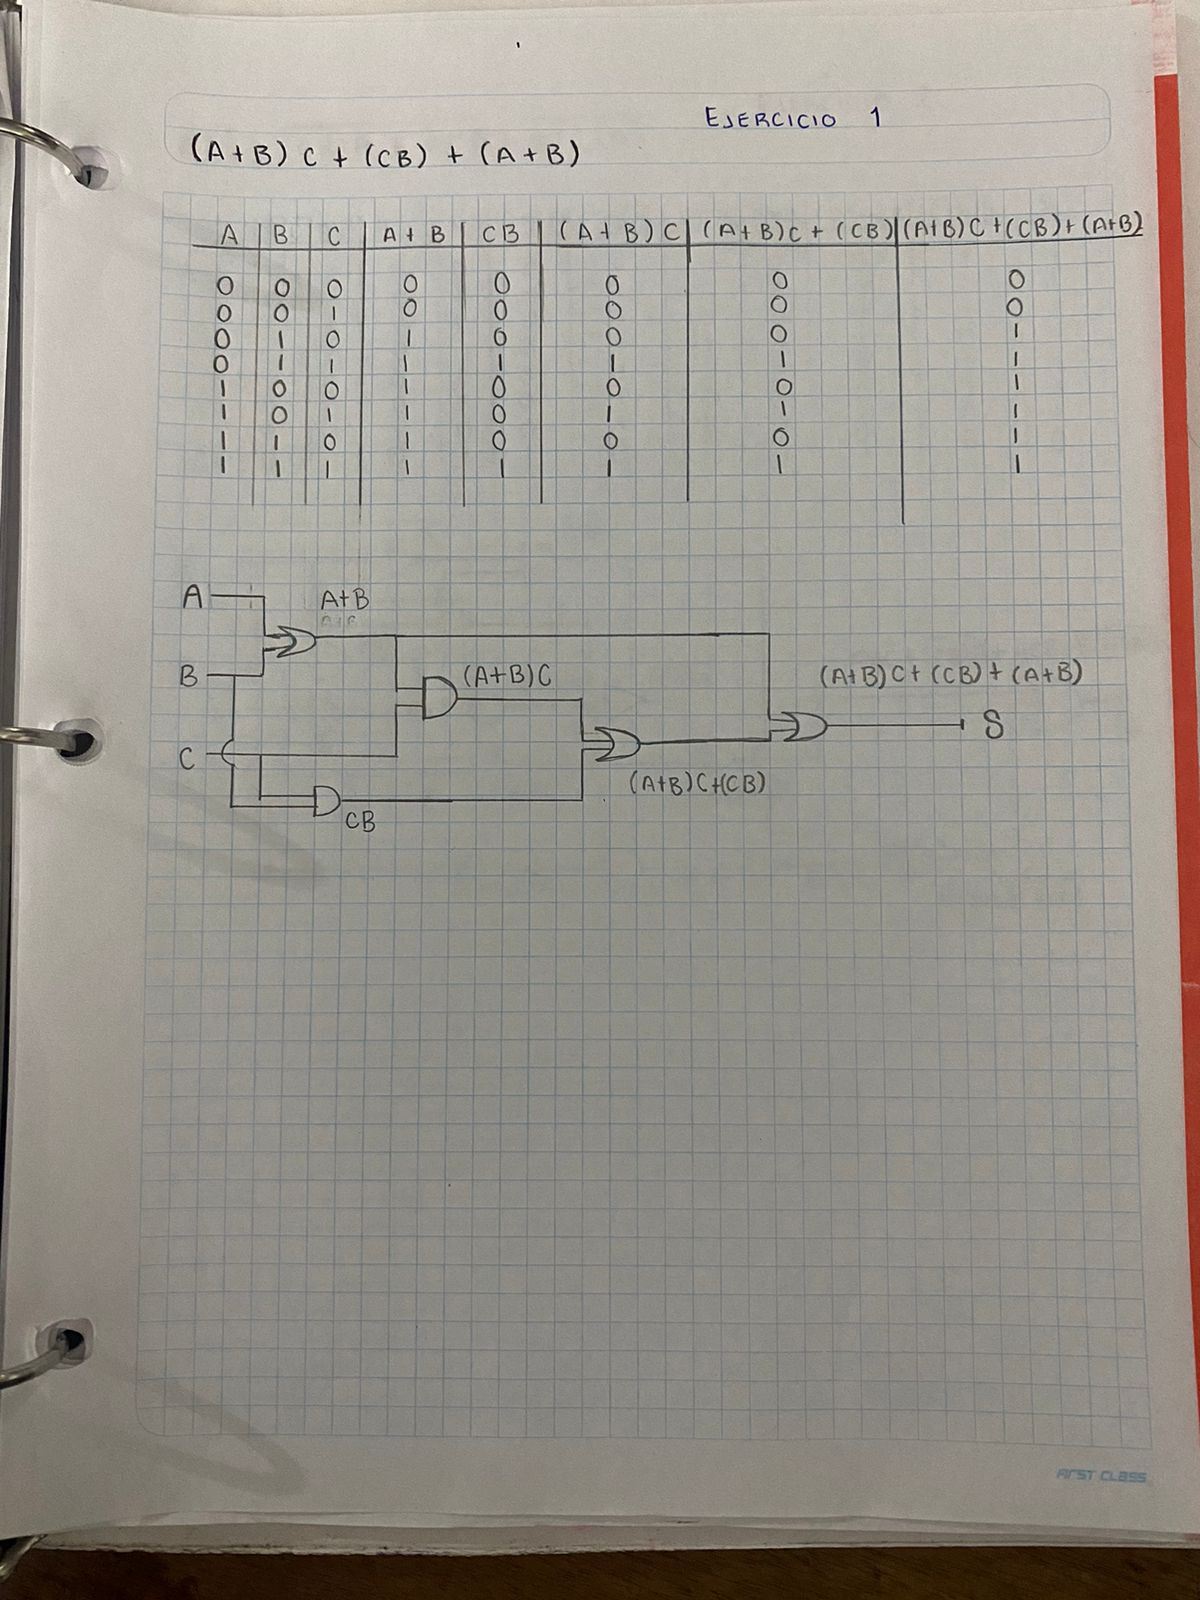 EJERCICIO 1
(A+B) C + (CB) + (A+B)
A B C A+B CB (A+B)C (A+B)C+(CB) (A+B)C+(CB)+(A+B)
0 0 0 0 0 0 0 0
0 0 1 0 0 0 0 0
0 1 0 1 0 0 0 1
0 1 1 1 1 1 1 1
1 0 0 1 0 0 0 1
1 0 1 1 0 1 1 1
1 1 0 1 0 0 0 1
1 1 1 1 1 1 1 1
A
A+B
B
(A+B)C
(A+B)C+(CB)+(A+B)
S
C
(A+B)C+(CB)
CB
FIRST CLASS